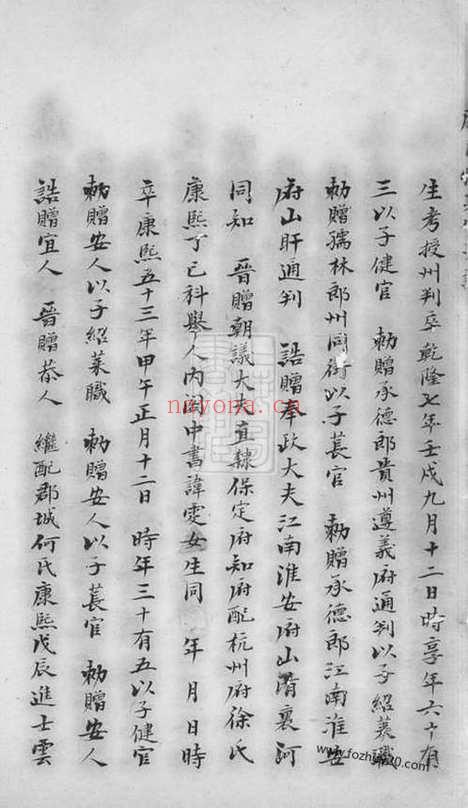 生考授州判卒乾隆七年壬戌九月十二日時享年六十有
三以子健官 勅贈承德郎貴州遵義府通判以子紹萊職
勅贈儒林郎州同銜以子萇官 勅贈承德郎江南淮安
府山盱通判 誥贈奉政大夫江南淮安府山清裏河
同知 晉贈朝議大夫直隸保定府知府配杭州府徐氏
康熙丁已科舉人內閣中書諱雯女生同 年 月 日時
卒康熙五十三年甲午正月十二日 時年三十有五以子健官
勅贈安人以子紹萊職 勅贈安人以子萇官 勅贈安人
誥贈宜人 晉贈恭人 繼配郡城何氏康熙戊辰進士雲
nayona.cn
www.fozhu920.com